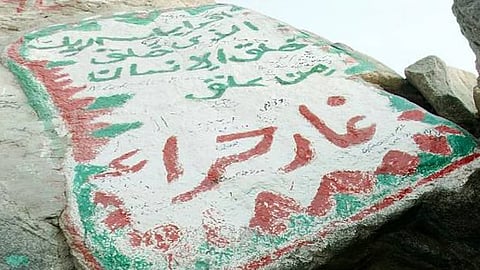 اقرأ باسم ربك
الذي خلق
خلق الإنسان
من علق
غار حراء